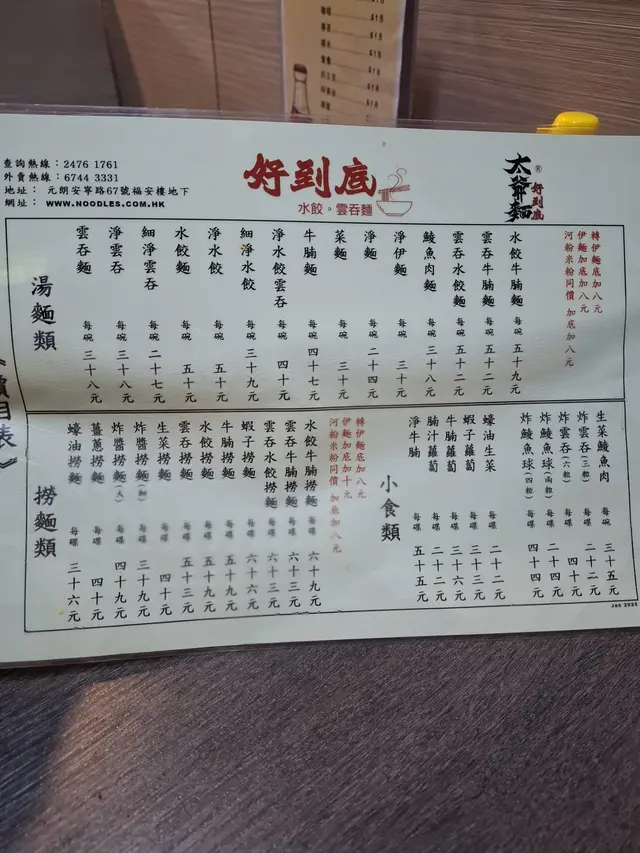 查詢熱線：2476 1761
外賣熱線：6744 3331
地址： 元朗安寧路67號福安樓地下
網址： WWW.NOODLES.COM.HK
好到底
水餃。雲吞麵
太爺麵
®
好到底
湯麵類
雲吞麵 每碗 三十八元
淨雲吞 每碗 三十八元
細淨雲吞 每碗 二十七元
水餃麵 每碗 五十元
淨水餃 每碗 五十元
細淨水餃 每碗 三十九元
淨水餃雲吞 每碗 四十元
牛腩麵 每碗 四十七元
菜麵 每碗 三十元
淨麵 每碗 二十四元
淨伊麵 每碗 三十元
鯪魚肉麵 每碗 三十八元
雲吞水餃麵 每碗 五十二元
雲吞牛腩麵 每碗 五十二元
水餃牛腩麵 每碗 五十九元
轉伊麵底加八元
伊麵加底加八元
河粉米粉同價 加底加八元
撈麵類
蠔油撈麵 每碟 三十六元
薑蔥撈麵 每碟 四十元
炸醬撈麵(大) 每碟 四十九元
炸醬撈麵(細) 每碟 三十九元
生菜撈麵 每碟 四十元
雲吞撈麵 每碟 五十三元
水餃撈麵 每碟 五十九元
牛腩撈麵 每碟 五十九元
蝦子撈麵 每碟 六十六元
雲吞水餃撈麵 每碟 六十三元
雲吞牛腩撈麵 每碟 六十三元
水餃牛腩撈麵 每碟 六十九元
轉伊麵底加八元
伊麵加底加十元
河粉米粉同價 加底加八元
小食類
淨牛腩 每碟 五十五元
腩汁蘿蔔 每碟 二十二元
牛腩蘿蔔 每碟 三十六元
蝦子蘿蔔 每碟 三十三元
蠔油生菜 每碟 二十二元
炸鯪魚球(四粒) 每碟 四十四元
炸鯪魚球(兩粒) 每碟 二十四元
炸雲吞(六粒) 每碟 四十元
炸雲吞(三粒) 每碟 二十二元
生菜鯪魚肉 每碗 三十五元
Jan 2025